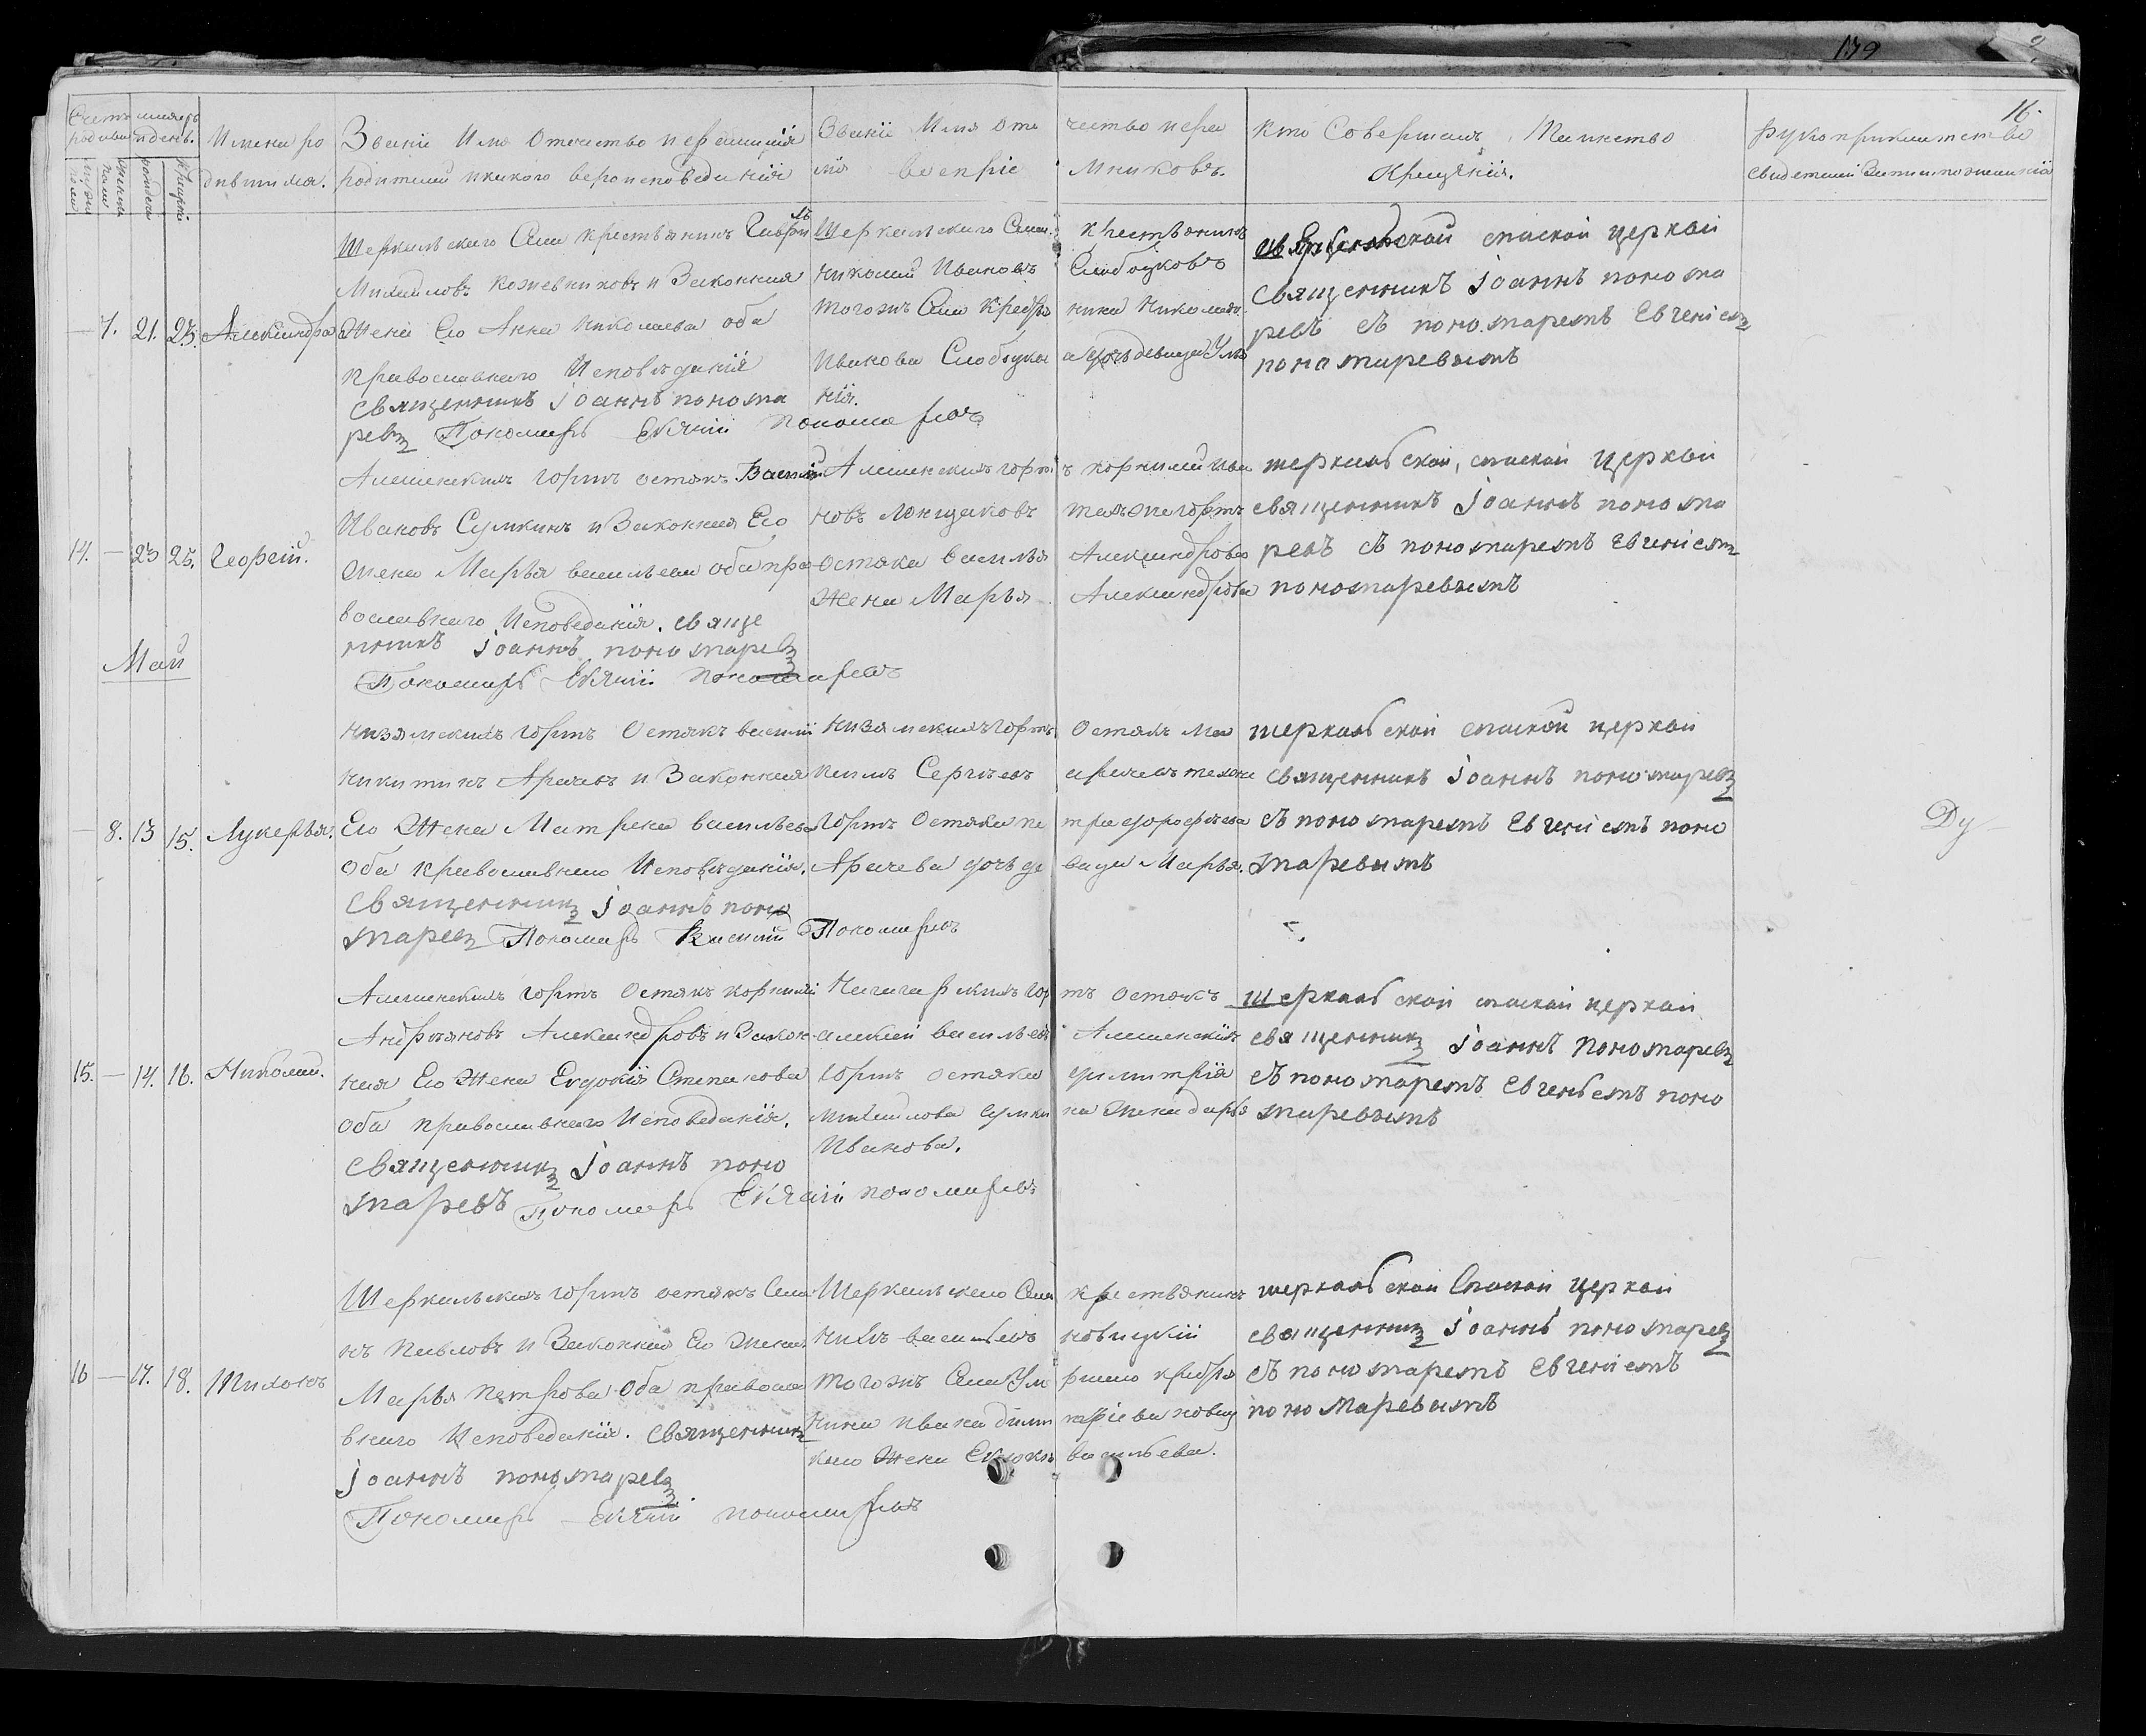 179
16.
Счетъ месяцъ
родивш. и день.
мужеска пола
женска пола
рожденія
крещенія
Имена ро
дившихся.
Званіе Имя Отечество и фамилія
родителей и какого вероисповеданія
Званіе Имя Оте чество и фами
лія воспріе мниковъ.
Кто Совершалъ Таинство
Крещенія.
Рукоприкладство
свидетелей записи по желанію
7. 21. 23. Александра
Шеркальскаго Села крестьянинъ Гаврилъ
Михайловъ Кожевниковъ и Законная
Жена Его Анна Николаева оба
православнаго Исповѣданія
священникъ Іоаннъ понома
ревъ Пономарь Евгеній Пономаревъ
Шеркальскаго Села крестьянинъ
Николай Ивановъ Слободсковъ
тогожъ Села Крестья нина Николая
Иванова Слободска а дочь девица Улья
нія.
Шеркальской спаской церкви
Священникъ Іоаннъ понома
ревъ съ пономаремъ Евгеніемъ
пономаревымъ
14. — 23 25. Георгій.
Алешенскихъ Юртъ остякъ Василій
Ивановъ Сумкинъ и Законная Его
жена Марья васильева оба пра
вославнаго Исповеданія. свяще
нникъ Іоаннъ пономаревъ
Пономарь Евгеній Пономаревъ
Алешенскихъ Юртъ Корнилій Ива
новъ техъже Юртъ
Остяка Василья Александрова
Жена Марья Александрова
шеркальской, спаской церкви
священникъ Іоаннъ понома
ревъ съ пономаремъ Евгеніемъ
пономаревымъ
Май
8. 13 15. Лукерья.
Низямскихъ Юртъ Остякъ василій
Никитинъ Арачевъ и Законная
Его Жена Матрена васильева
оба православнаго Исповѣданія.
Священникъ Іоаннъ поно
маревъ Пономарь Евгеній Пономаревъ
Низямскихъ Юртъ Остякъ Ма
ксимъ Сергѣевъ Арачевъ техже
Юртъ Остяка пе тра дорофѣева
Арачева дочь де вица Марья.
шеркальской спаской церкви
священникъ Іоаннъ пономаревъ
съ пономаремъ Евгеніемъ поно
маревымъ
Ду
15. — 14. 16. Николай.
Алешенскихъ Юртъ Остякъ корнилій
Андреяновъ Александровъ и Закон
ная Его Жена Евдокія Степанова
Оба православнаго Исповеданія.
Священникъ Іоаннъ поно
маревъ Пономарь Евгеній пономаревъ
Юртъ остякъ
алексей васильевъ Алешенскихъ
Юртъ остяка димитрія
михайлова Сумки на Жена дарья
Иванова.
Шеркальской спаской церкви
священникъ Іоаннъ Пономаревъ
съ пономаремъ Евгеніемъ поно
маревымъ
16 — 17. 18. Тихонъ
Шеркальскихъ Юртъ остякъ Семе
нъ Павловъ и Законная Его Жена
Марья Петрова Оба правосла
внаго Исповеданія. Священникъ
Іоаннъ пономаревъ
Пономарь Евгеній пономаревъ
Шеркальскаго Села крестьянинъ
васильевъ Новицкій
тогожъ Села Уме ршаго крестья
нина Ивана дими тріева новиц
каго Жена васильева.
шеркальской Спаской церкви
священникъ Іоаннъ пономаревъ
съ пономаремъ Евгеніемъ
пономаревымъ